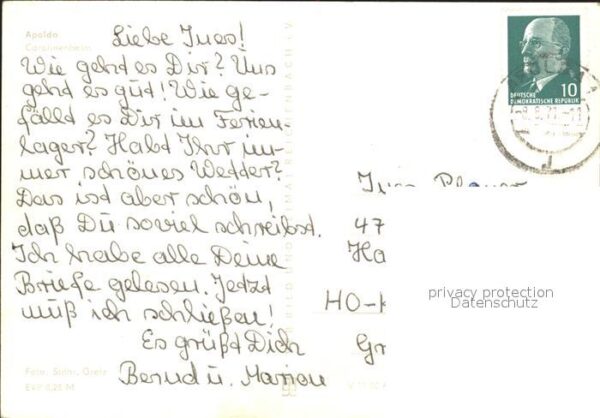 Apolda
Carolinenheim
Liebe Ines!
Wie geht es Dir? Uns
geht es gut! Wie ge-
fällt es Dir im Ferien-
lager? Habt Ihr im-
mer schönes Wetter?
Das ist aber schön,
daß Du soviel schreibst.
Ich habe alle Deine
Briefe gelesen. Jetzt
muß ich schließen!
Es grüßt Dich
Bernd u. Marion
Foto: Stöhr, Greiz
EVP 0,25 M
BILD UND HEIMAT REICHENBACH i. V.
10
DEUTSCHE
DEMOKRATISCHE REPUBLIK
47
Ha
HO-
Gr
privacy protection
Datenschutz